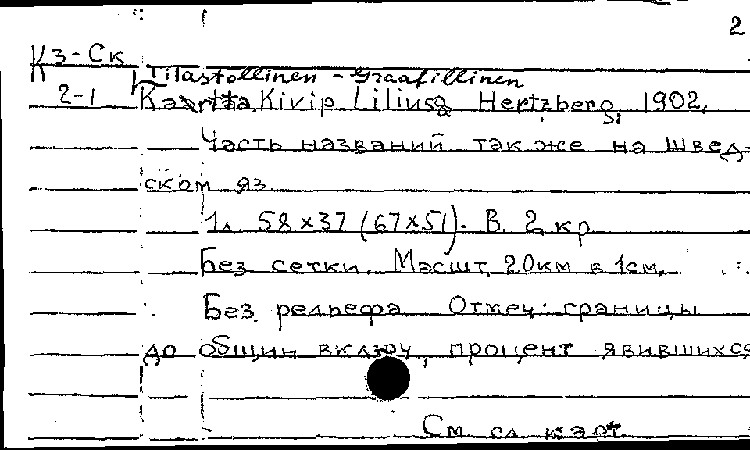 2
Кз-Ск
Tilastollinen - Graafillinen
2-1 Kartta Kivip Lilius & Hertzberg, 1902.
Часть названий также на швед-
ском яз.
1л 58x37 (67x51). В 2 кр
Без сетки. Масшт. 20км в 1см.
Без рельефа Отмеч: границы
до общин включ, процент явившихся
См сл карт